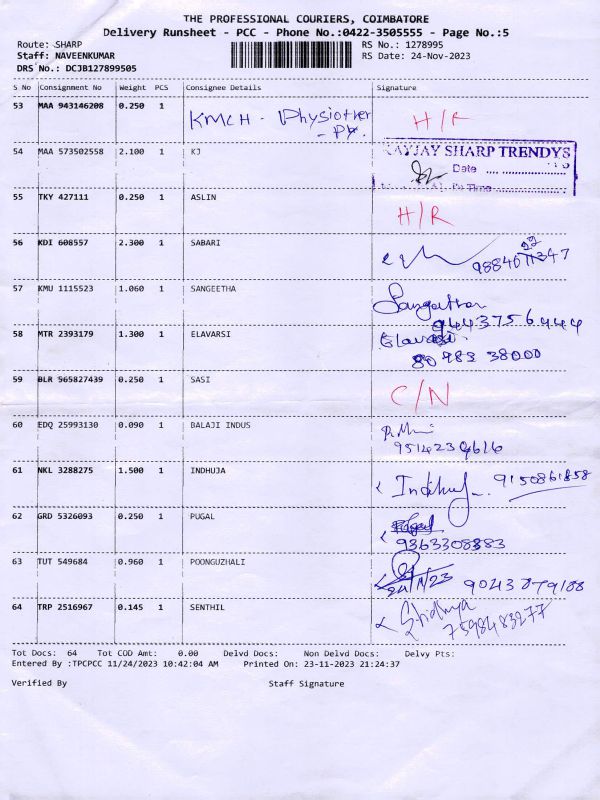 THE PROFESSIONAL COURIERS, COIMBATORE
Delivery Runsheet - PCC - Phone No.:0422-3505555 - Page No.:5
Route: SHARP
RS No.: 1278995
Staff: NAVEENKUMAR
RS Date: 24-Nov-2023
DRS No.: DCJB127899505
S No Consignment No Weight PCS Consignee Details Signature
53 MAA 943146208 0.250 1 KMCH - Physiother H/R
54 MAA 573502558 2.100 1 KJ KAYJAY SHARP TRENDYS
Date
Time
55 TKY 427111 0.250 1 ASLIN H/R
56 KDI 608557 2.300 1 SABARI
57 KMU 1115523 1.060 1 SANGEETHA
9443756444
58 MTR 2393179 1.300 1 ELAVARSI
80983 38000
59 BLR 565827439 0.250 1 SASI C/N
60 EDQ 25993130 0.090 1 BALAJI INDUS
9514234616
61 NKL 3288275 1.500 1 INDHUJA 9150861858
62 GRD 5326093 0.250 1 PUGAL
9363308383
63 TUT 549684 0.960 1 POONGUZHALI
24/11/23 9043 879188
64 TRP 2516967 0.145 1 SENTHIL
7598483277
Tot Docs: 64 Tot COD Amt: 0.00 Delvd Docs: Non Delvd Docs: Delvy Pts:
Entered By :TPCPCC 11/24/2023 10:42:04 AM Printed On: 23-11-2023 21:24:37
Verified By Staff Signature